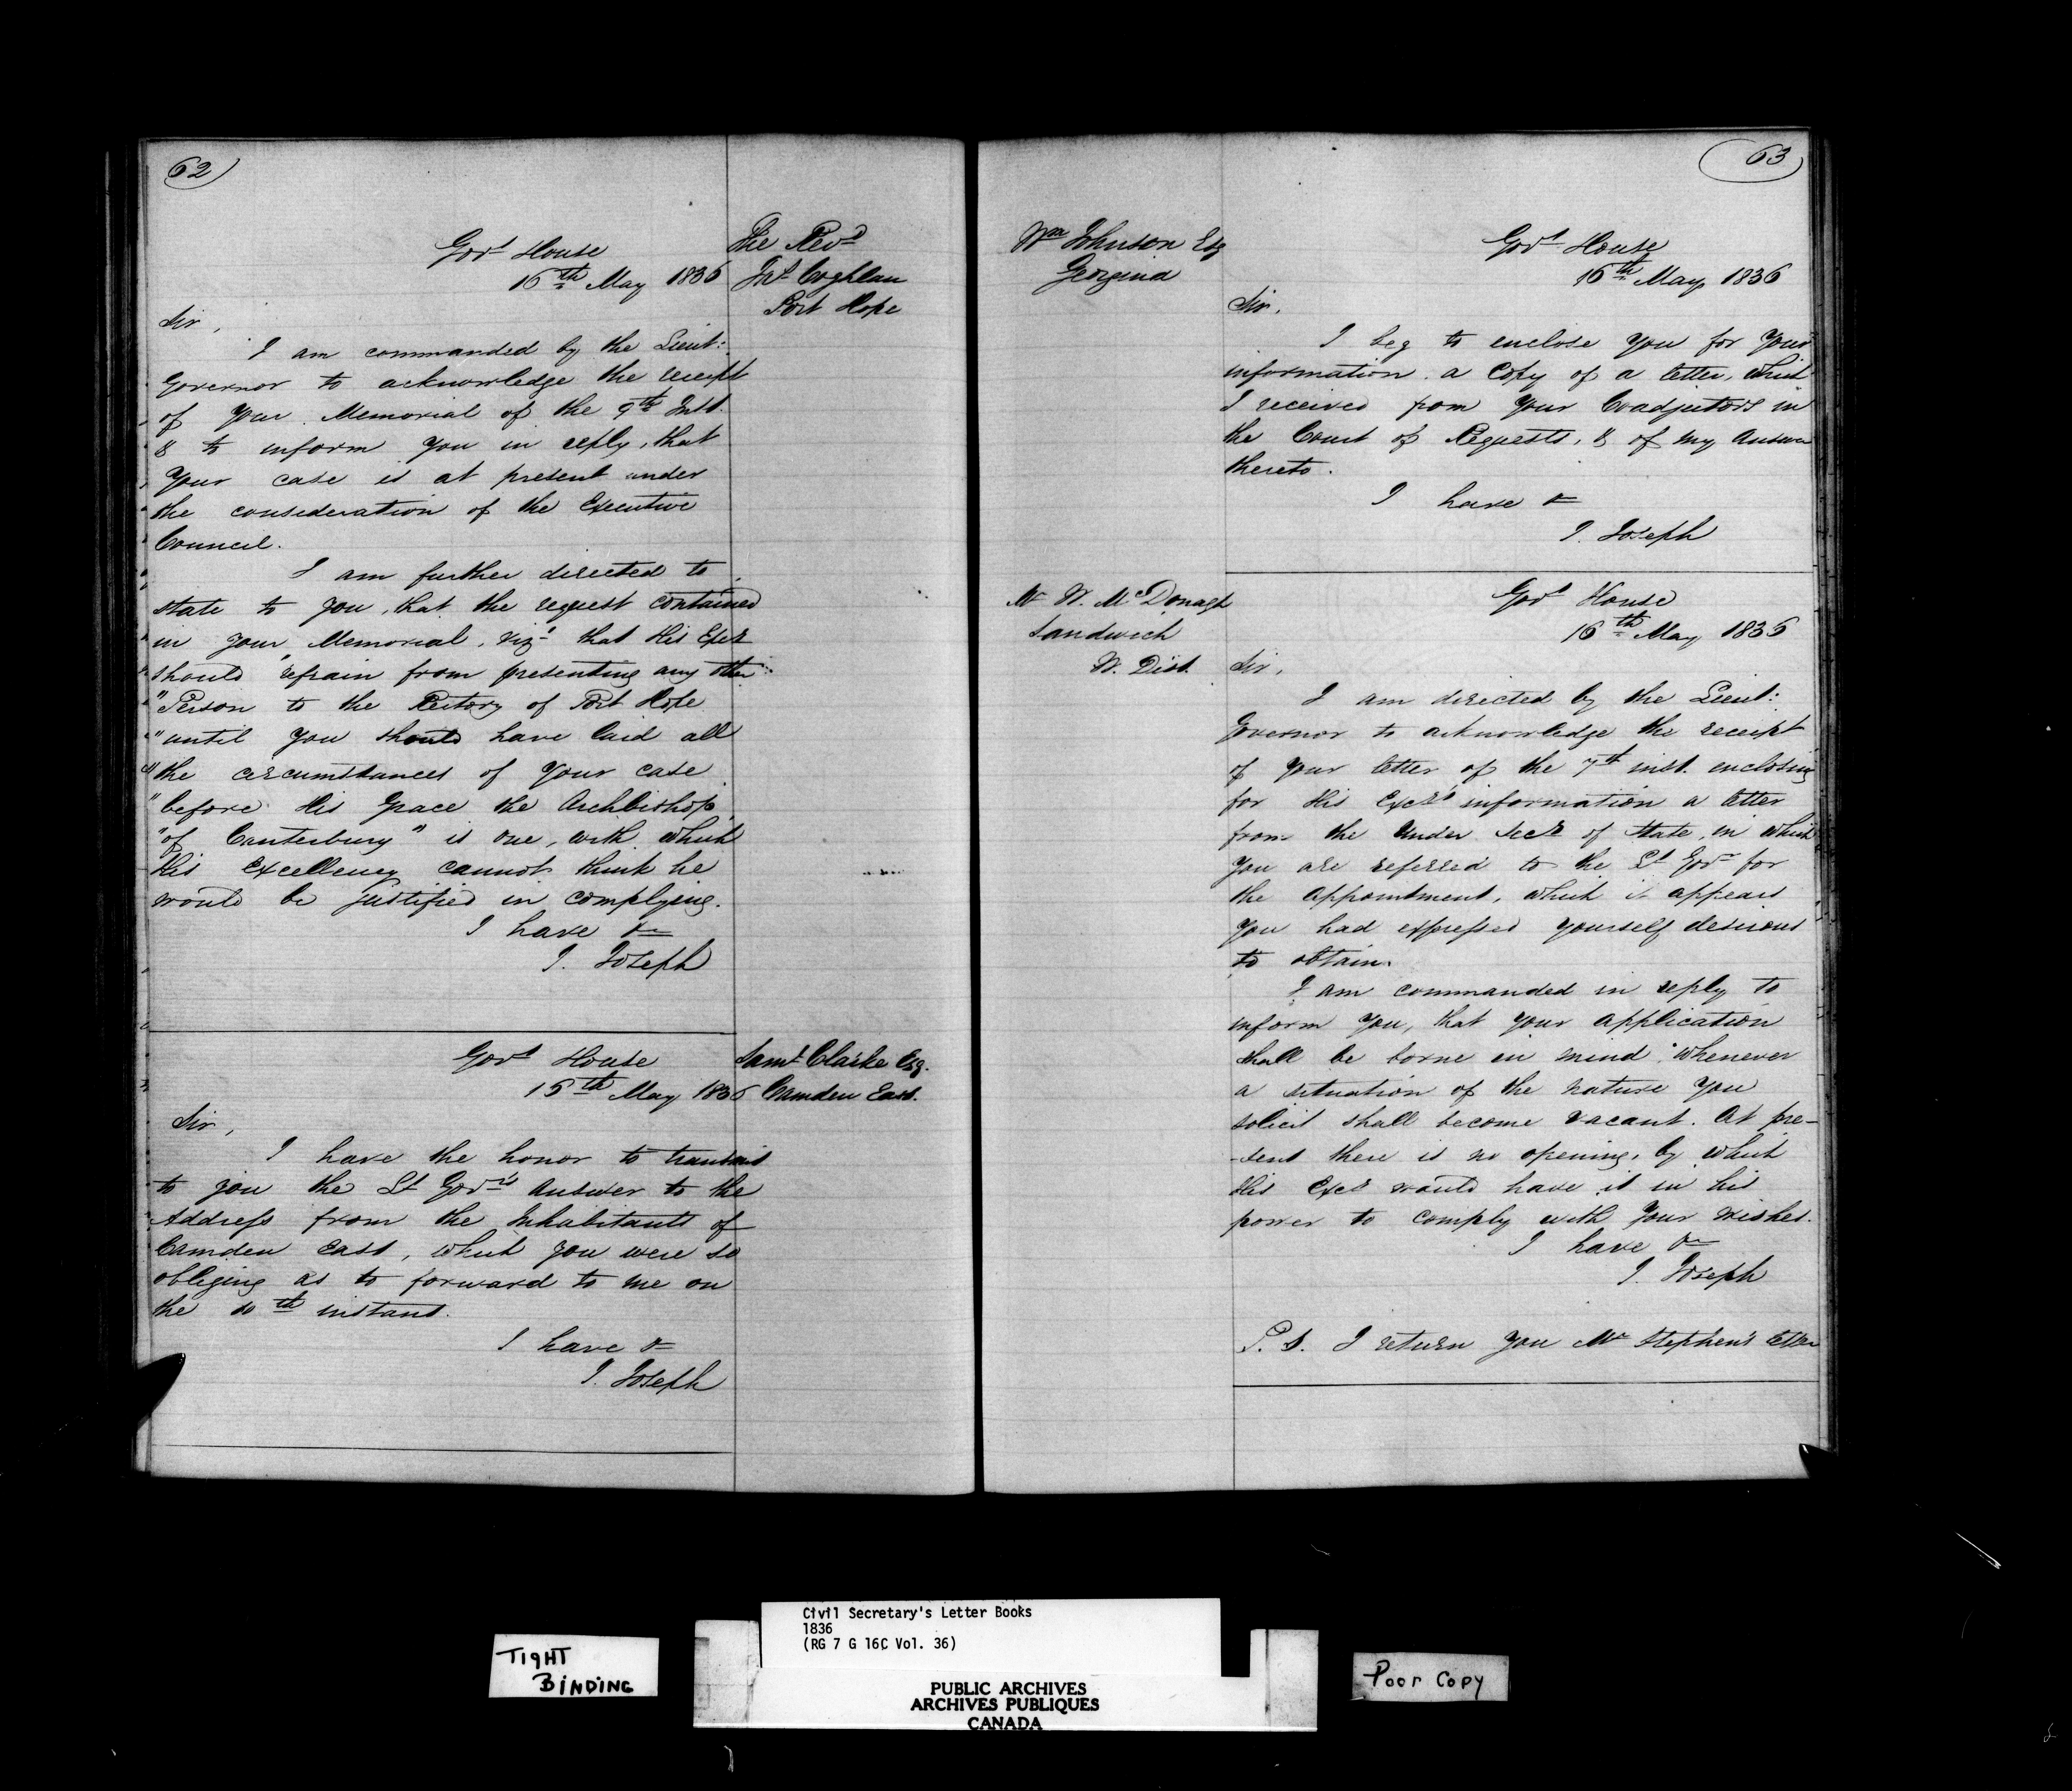 62
Govt House
16th May 1836
The Revd
Jno Coghlan
Port Hope
Sir,
I am commanded by the Lieut:
Governor to acknowledge the receipt
of your Memorial of the 9th Inst.
& to inform you in reply, that
your case is at present under
the consideration of the Executive
Council.
I am further directed to
state to you, that the request contained
in your Memorial, vizt that His Excy
should "refrain from presenting any other
"Person to the Rectory of Port Hope
"until you should have laid all
"the circumstances of your case
"before His Grace the Archbishop
"of Canterbury" is one, with which
His Excellency cannot think he
would be justified in complying.
I have &c
J. Joseph
Govt House
16th May 1836
Saml Clarke Esq.
Camden East.
Sir,
I have the honor to transmit
to you the Lt Govr's Answer to the
Address from the Inhabitants of
Camden East, which you were so
obliging as to forward to me on
the 10th instant.
I have &c
J. Joseph
63
Wm Johnson Esq
Georgina
Govt House
16th May 1836
Sir,
I beg to enclose you for your
information a Copy of a letter, which
I received from your Coadjutors in
the Court of Requests, & of my Answer
thereto.
I have &c
J. Joseph
Mr W. McDonagh
Sandwich
W. Dist.
Govt House
16th May 1836
Sir,
I am directed by the Lieut:
Governor to acknowledge the receipt
of your letter of the 7th inst. enclosing
for His Excy's information a letter
from the Under Secy of State, in which
you are referred to the Lt Govr for
the appointment, which it appears
you had expressed yourself desirous
to obtain.
I am commanded in reply to
inform you, that your application
shall be borne in mind, whenever
a situation of the nature you
solicit shall become vacant. At pre-
-sent there is no opening, by which
His Excy would have it in his
power to comply with your wishes.
I have &c
J. Joseph
P.S. I return you Mr Stephen's letter
TIGHT
BINDING
Civil Secretary's Letter Books
1836
(RG 7 G 16C Vol. 36)
PUBLIC ARCHIVES
ARCHIVES PUBLIQUES
CANADA
Poor Copy